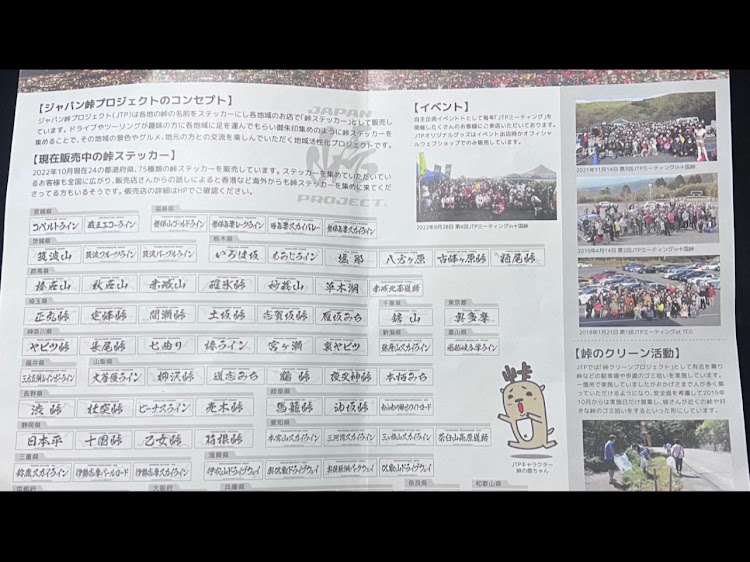 【ジャパン峠プロジェクトのコンセプト】
ジャパン峠プロジェクト(JTP)は各地の峠の名前をステッカーにし各地域のお店で「峠ステッカー」として販売し
ています。ドライブやツーリングが趣味の方に各地域に足を運んでもらい御朱印集めのように峠ステッカーを
集めることで、その地域の景色やグルメ、地元の方との交流を楽しんでいただく地域活性化プロジェクトです。
JAPAN
PROJECT
【現在販売中の峠ステッカー】
2022年10月現在24の都道府県、75種類の峠ステッカーを販売しています。ステッカーを集めていただいてい
るお客様も全国に広がり、販売店さんからの話しによると香港など海外からも峠ステッカーを集めに来てくだ
さってる方もいるそうです。販売店の詳細はHPでご確認ください。
宮城県 福島県
コバルトライン 蔵王エコーライン 磐梯山ゴールドライン 磐梯吾妻レークライン 西吾妻スカイバレー 磐梯吾妻スカイライン
茨城県 栃木県
筑波山 筑波フルーツライン 筑波パープルライン いろは坂 もみじライン 塩那 八方ヶ原 古峰ヶ原峠
群馬県
榛名山 秋名山 赤城山 碓氷峠 妙義山 草木湖 赤城北面道路
埼玉県 千葉県 東京都
正丸峠 定峰峠 間瀬峠 土坂峠 志賀坂峠 雁坂みち 鋸山 奥多摩
神奈川県 新潟県 富山県
ヤビツ峠 長尾峠 七曲り 椿ライン 宮ヶ瀬 裏ヤビツ 弥彦山スカイライン
福井県 山梨県
三方五湖レインボーライン 大菩薩ライン 柳沢峠 道志みち 鶴峠 夜叉神峠 本栖みち
長野県 岐阜県
渋峠 杖突峠 ビーナスライン 麦草峠 馬籠峠
静岡県 愛知県
日本平 十国峠 乙女峠 箱根峠 本宮山スカイライン 三河湾スカイライン 三ヶ根山スカイライン 茶臼山高原道路
三重県 滋賀県
鈴鹿スカイライン 伊勢志摩パールロード 伊勢志摩スカイライン 伊吹山ドライブウェイ 奥比叡ドライブウェイ 奥琵琶湖パークウェイ 比叡山ドライブウェイ
京都府 大阪府 兵庫県 奈良県 和歌山県
JTPキャラクター
峠の鹿ちゃん
【イベント】
自主企画イベントとして毎年「JTPミーティング」を
開催したくさんのお客様にご来店いただいております。
JTPオリジナルグッズはイベント出店時かオフィシャ
ルウェブショップでのみ販売しています。
2022年8月28日 第4回JTPミーティングin十国峠
2021年11月14日 第3回JTPミーティングin十国峠
2019年4月14日 第2回JTPミーティングin十国峠
2018年1月21日 第1回JTPミーティングat TCG
【峠のクリーン活動】
JTPでは「峠クリーンプロジェクト」として有志を募り
峠などの駐車場や歩道のゴミ拾いを実施しています。
一箇所で実施していましたがおかげさまで人が多く集
っていただけるようになり、安全面を考慮して2019年
10月からは実施日だけ提案し、皆さんが近くの峠や好
きな峠のゴミ拾いをするといった形にしています。